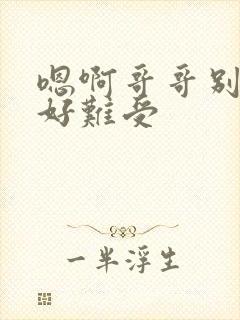 嗯啊哥哥别
好難受
一半浮生